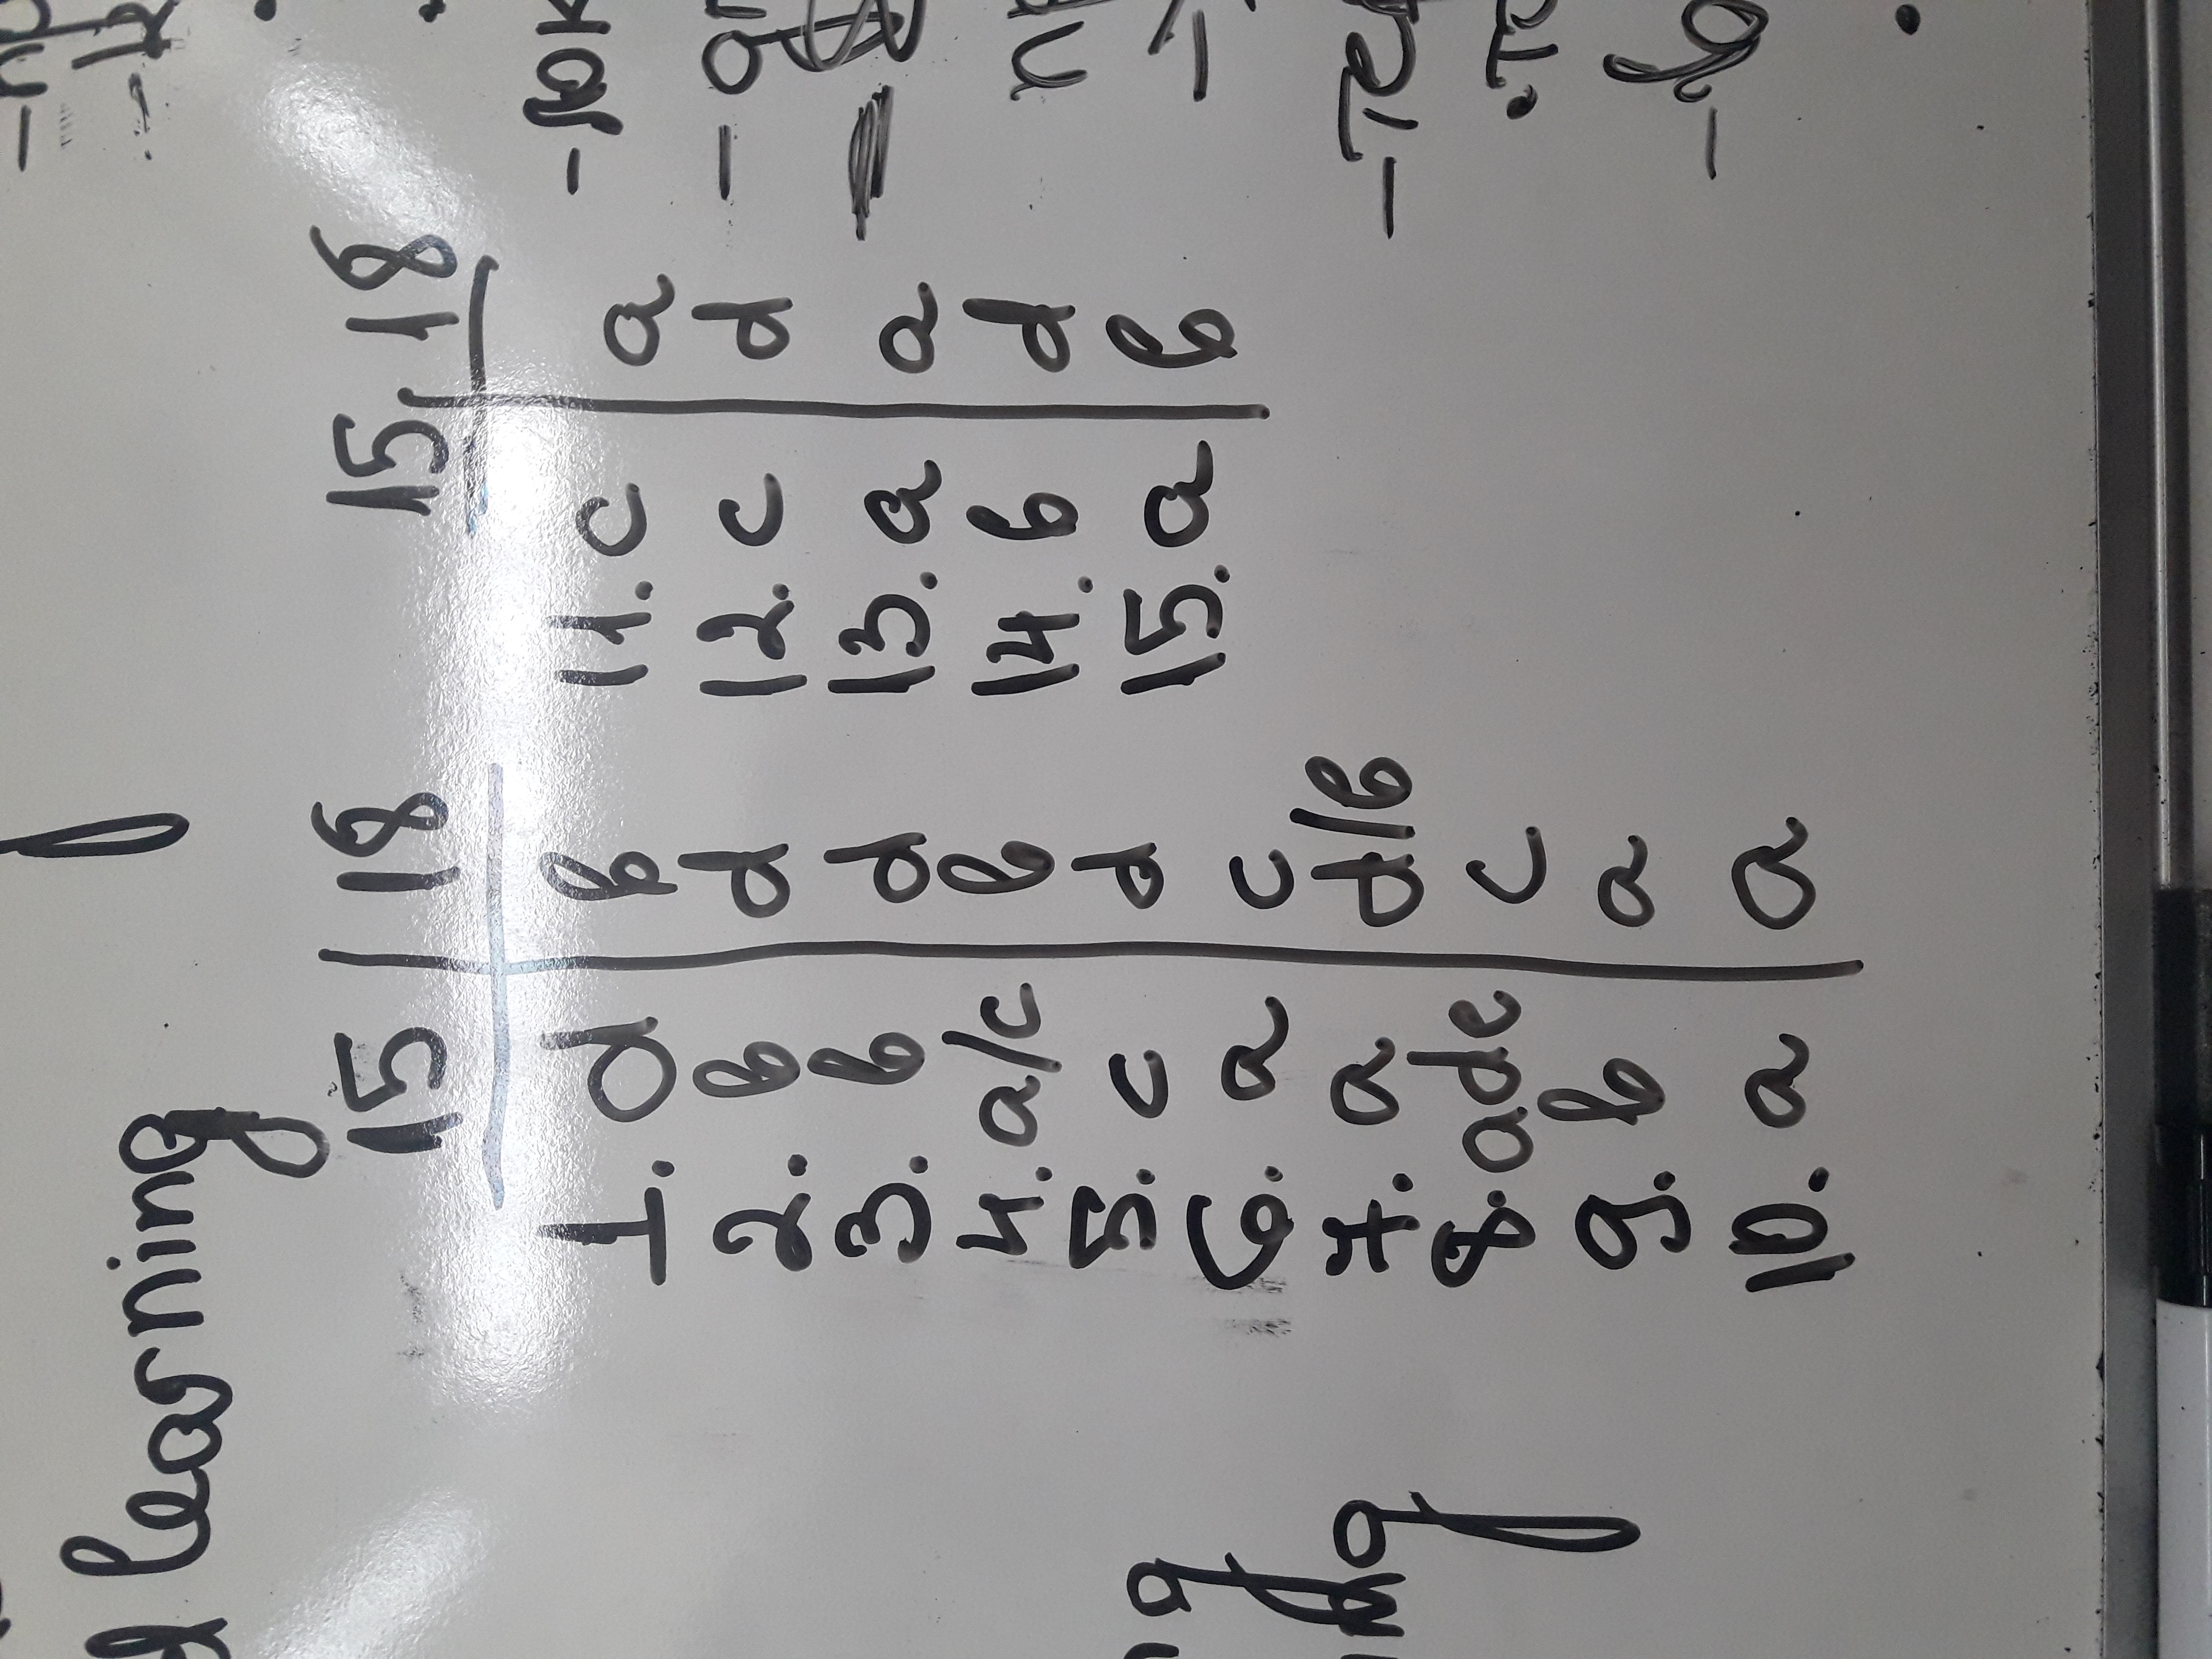 learning
15 | 18
1. d | b
2. b | d
3. b | d
4. a/c | b
5. c | d
6. a | c
7. a | d/b
8. ade | c
9. b | a
10. a | a
15 | 18
11. c | a
12. c | d
13. a | a
14. b | d
15. a | b